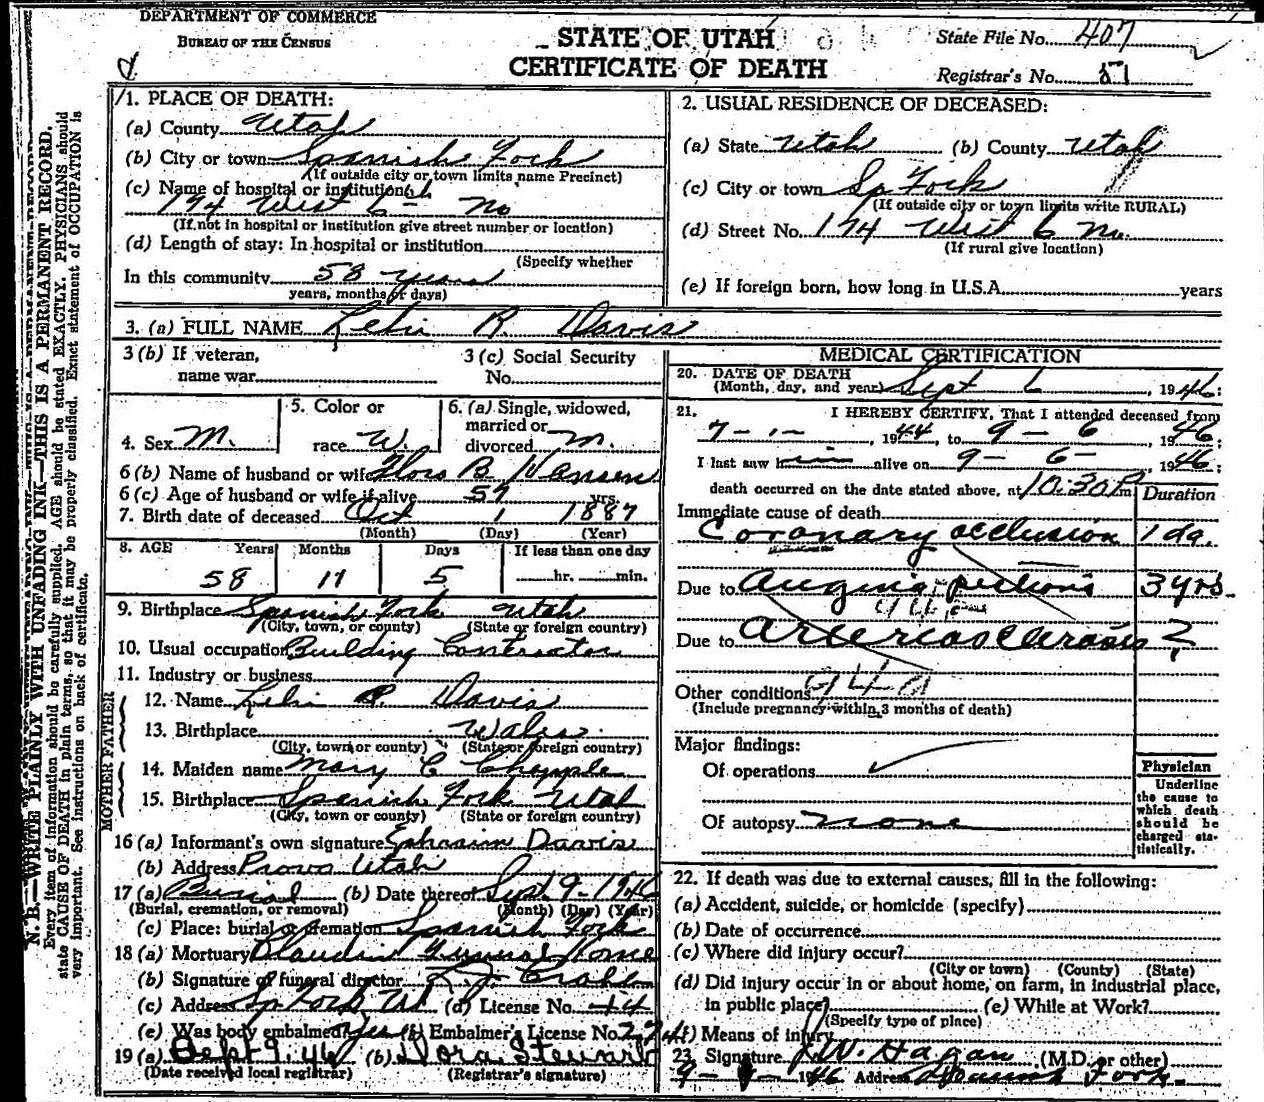 DEPARTMENT OF COMMERCE
BUREAU OF THE CENSUS
STATE OF UTAH
CERTIFICATE OF DEATH
State File No. 407
Registrar's No. 51
N. B.—WRITE PLAINLY WITH UNFADING INK—THIS IS A PERMANENT RECORD.
Every item of information should be carefully supplied. AGE should be stated EXACTLY. PHYSICIANS should
state CAUSE OF DEATH in plain terms, so that it may be properly classified. Exact statement of OCCUPATION is
very important. See instructions on back of certificate.
1. PLACE OF DEATH:
(a) County Utah
(b) City or town Spanish Fork
(If outside city or town limits name Precinct)
(c) Name of hospital or institution:
194 West 6th No
(If not in hospital or institution give street number or location)
(d) Length of stay: In hospital or institution
(Specify whether
In this community 58 years
years, months or days)
2. USUAL RESIDENCE OF DECEASED:
(a) State Utah (b) County Utah
(c) City or town Sp Fork
(If outside city or town limits write RURAL)
(d) Street No. 194 West 6 No.
(If rural give location)
(e) If foreign born, how long in U.S.A. years
3. (a) FULL NAME Lehi R Davis
3 (b) If veteran,
name war
3 (c) Social Security
No.
4. Sex M.
5. Color or
race W.
6. (a) Single, widowed,
married or
divorced M.
6 (b) Name of husband or wife Flora B Hansen
6 (c) Age of husband or wife if alive 57 yrs.
7. Birth date of deceased Oct 1 1887
(Month) (Day) (Year)
8. AGE Years Months Days If less than one day
58 11 5 hr. min.
9. Birthplace Spanish Fork Utah
(City, town, or county) (State or foreign country)
10. Usual occupation Building Contractor
11. Industry or business
FATHER
12. Name Lehi R. Davis
13. Birthplace Wales
(City, town or county) (State or foreign country)
MOTHER
14. Maiden name Mary C Chapple
15. Birthplace Spanish Fork Utah
(City, town or county) (State or foreign country)
16 (a) Informant's own signature Ephraim Davis
(b) Address Provo Utah
17 (a) Burial (b) Date thereof Sept 9-1946
(Burial, cremation, or removal) (Month) (Day) (Year)
(c) Place: burial or cremation Spanish Fork
18 (a) Mortuary Funeral Home
(b) Signature of funeral director
(c) Address Sp Fork Ut (d) License No. 14
(e) Was body embalmed? Yes (f) Embalmer's License No. 224
19 (a) Sept 9, 46 (b) Dora Stewart
(Date received local registrar) (Registrar's signature)
MEDICAL CERTIFICATION
20. DATE OF DEATH
(Month, day, and year) Sept 6 1946:
21. I HEREBY CERTIFY, That I attended deceased from
7-1-, 1944, to 9-6, 1946;
I last saw him alive on 9-6-, 1946;
death occurred on the date stated above, at 10:30 P m
Duration
Immediate cause of death
Coronary occlusion 1 da.
Due to Angina pectoris 3 yrs.
Due to Arteriosclerosis ?
Other conditions 94a
(Include pregnancy within 3 months of death)
Major findings:
Of operations
Of autopsy none
Physician
Underline
the cause to
which death
should be
charged sta-
tistically.
22. If death was due to external causes, fill in the following:
(a) Accident, suicide, or homicide (specify)
(b) Date of occurrence
(c) Where did injury occur?
(City or town) (County) (State)
(d) Did injury occur in or about home, on farm, in industrial place,
in public place? (e) While at Work?
(Specify type of place)
(f) Means of injury
23 Signature W. Hagan (M.D. or other)
1946 Address Spanish Fork